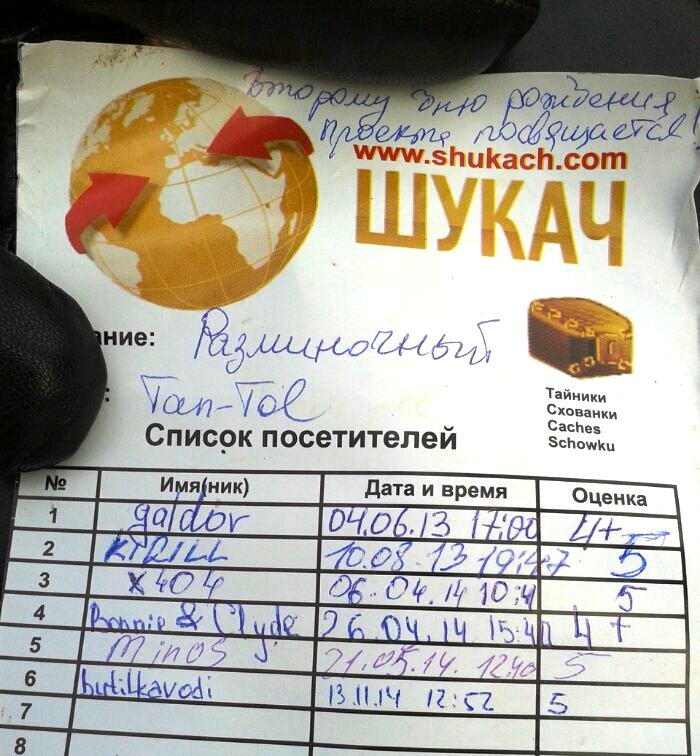 Второму дню рождения
проекта посвящается!
www.shukach.com
ШУКАЧ
ание: Разминочный
: Tan-Tol
Тайники
Сховaнки
Caches
Schowku
Список посетителей
№ Имя(ник) Дата и время Оценка
1 galdor 04.06.13 17:00 4+
2 KIRILL 10.08.13 19:47 5
3 x404 06.04.14 5
4 Bonnie & Clyde 26.04.14 4+
5 Minos 21.05.14. 12:40 5
6 butilkavodi 13.11.14 12:52 5
7
8